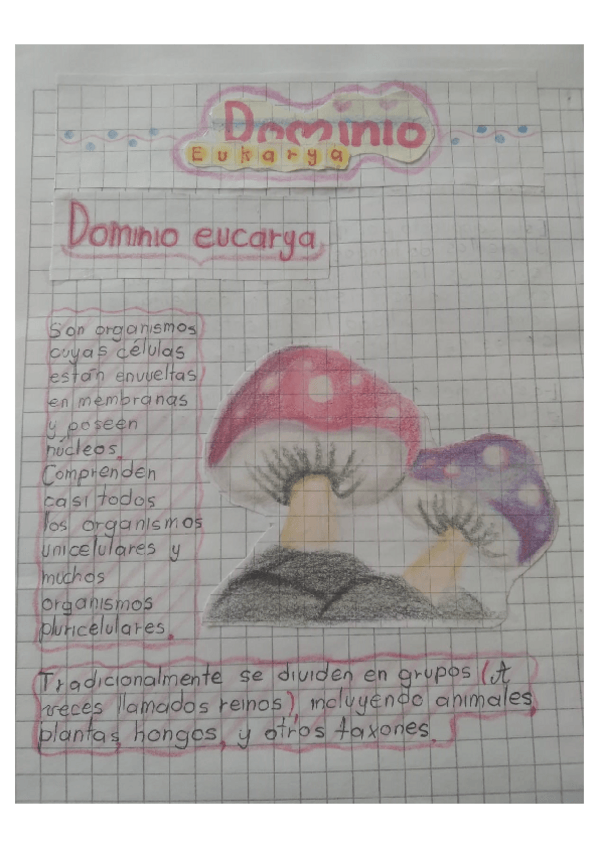 Dominio
Eukarya
Dominio eucarya
Son organismos
cuyas células
están envueltas
en membranas
y poseen
núcleos.
Comprenden
casi todos
los organismos
unicelulares y
muchos
organismos
pluricelulares.
Tradicionalmente se dividen en grupos (A
veces llamados reinos), incluyendo animales,
plantas, hongos, y otros taxones.